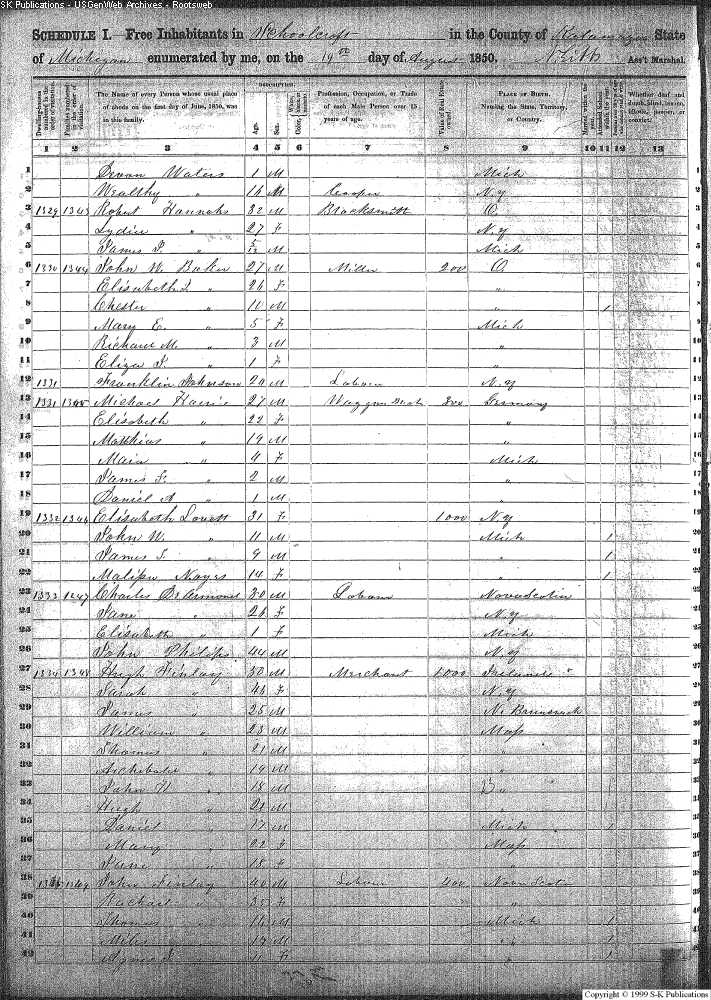 S-K Publications - USGenWeb Archives - Rootsweb
SCHEDULE I.—Free Inhabitants in Schoolcraft in the County of Kalamazoo State
of Michigan enumerated by me, on the 19 day of August 1850, Ass't Marshal.
DESCRIPTION.
The Name of every Person whose usual place of abode on the first day of June, 1850, was in this family.
Age.
Sex.
Profession, Occupation, or Trade of each Male Person over 15 years of age.
Value of Real Estate owned.
PLACE OF BIRTH. Naming the State, Territory, or Country.
Whether deaf and dumb, blind, insane, idiotic, pauper, or convict.
1 2 3 4 5 6 7 8 9 10 11 12 13
1 Waters 1 M Mich
2 Wealthy " 16 M Cooper N.Y
3 1329 1343 Robert Hannahs 32 M Blacksmith O.
4 Lydia " 27 F N.Y
5 James P. " 5/12 M Mich
6 1330 1344 John W. Baker 27 M Miller 200 O
7 Elisabeth " 26 F "
8 Chester " 10 M " 1
9 Mary E. " 5 F Mich
10 Richard M. " 3 M "
11 Eliza " 1 F "
12 1331 Franklin Johnson 20 M Labour N.Y
13 1331 1345 Michael 27 M Waggon 300 Germany
14 Elisabeth " 22 F "
15 Matthias " 19 M "
16 " 4 F Mich
17 James F. " 2 M "
18 Daniel A " 1 M "
19 1332 1346 Elisabeth Lovett 31 F 1000 N.Y
20 John W. " 11 M Mich 1
21 James " 9 M " 1
22 Noyes 14 F " 1
23 1333 1347 Charles DeArmond 30 M Labour Nova Scotia
24 Jane " 26 F N.Y
25 Elisabeth " 1 F Mich
26 John Philips 44 M N.Y
27 1334 1348 Hugh Finlay 50 M Merchant 1000 Ireland
28 Sarah " 46 F N.Y
29 James " 25 M N. Brunswick
30 William " 23 M Mass
31 Thomas " 21 M "
32 Archibald " 19 M "
33 John H " 18 M "
34 Hugh " 21 M "
35 Daniel " 17 M Mich 1
36 Mary " 22 F Mass
37 Jane " 18 F "
38 1349 John Finlay 40 M Labour 400 Nova Scotia
39 Rachael " 35 F "
40 Thomas " M Mich 1
41 Miles " M " 1
42 Agnes " 11 F " 1
Copyright © 1999 S-K Publications